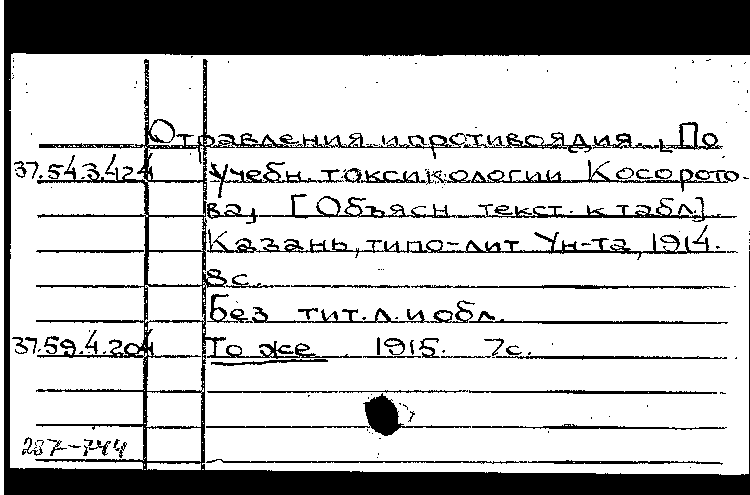 Отравления и противоядия. [По
37.54.3.424 учебн. токсикологии Косорото-
ва], [Объясн. текст. к табл.].
Казань, типо-лит. Ун-та, 1914.
8с.
Без тит. л. и обл.
37.59.4.204 То же 1915. 7с.
287-744